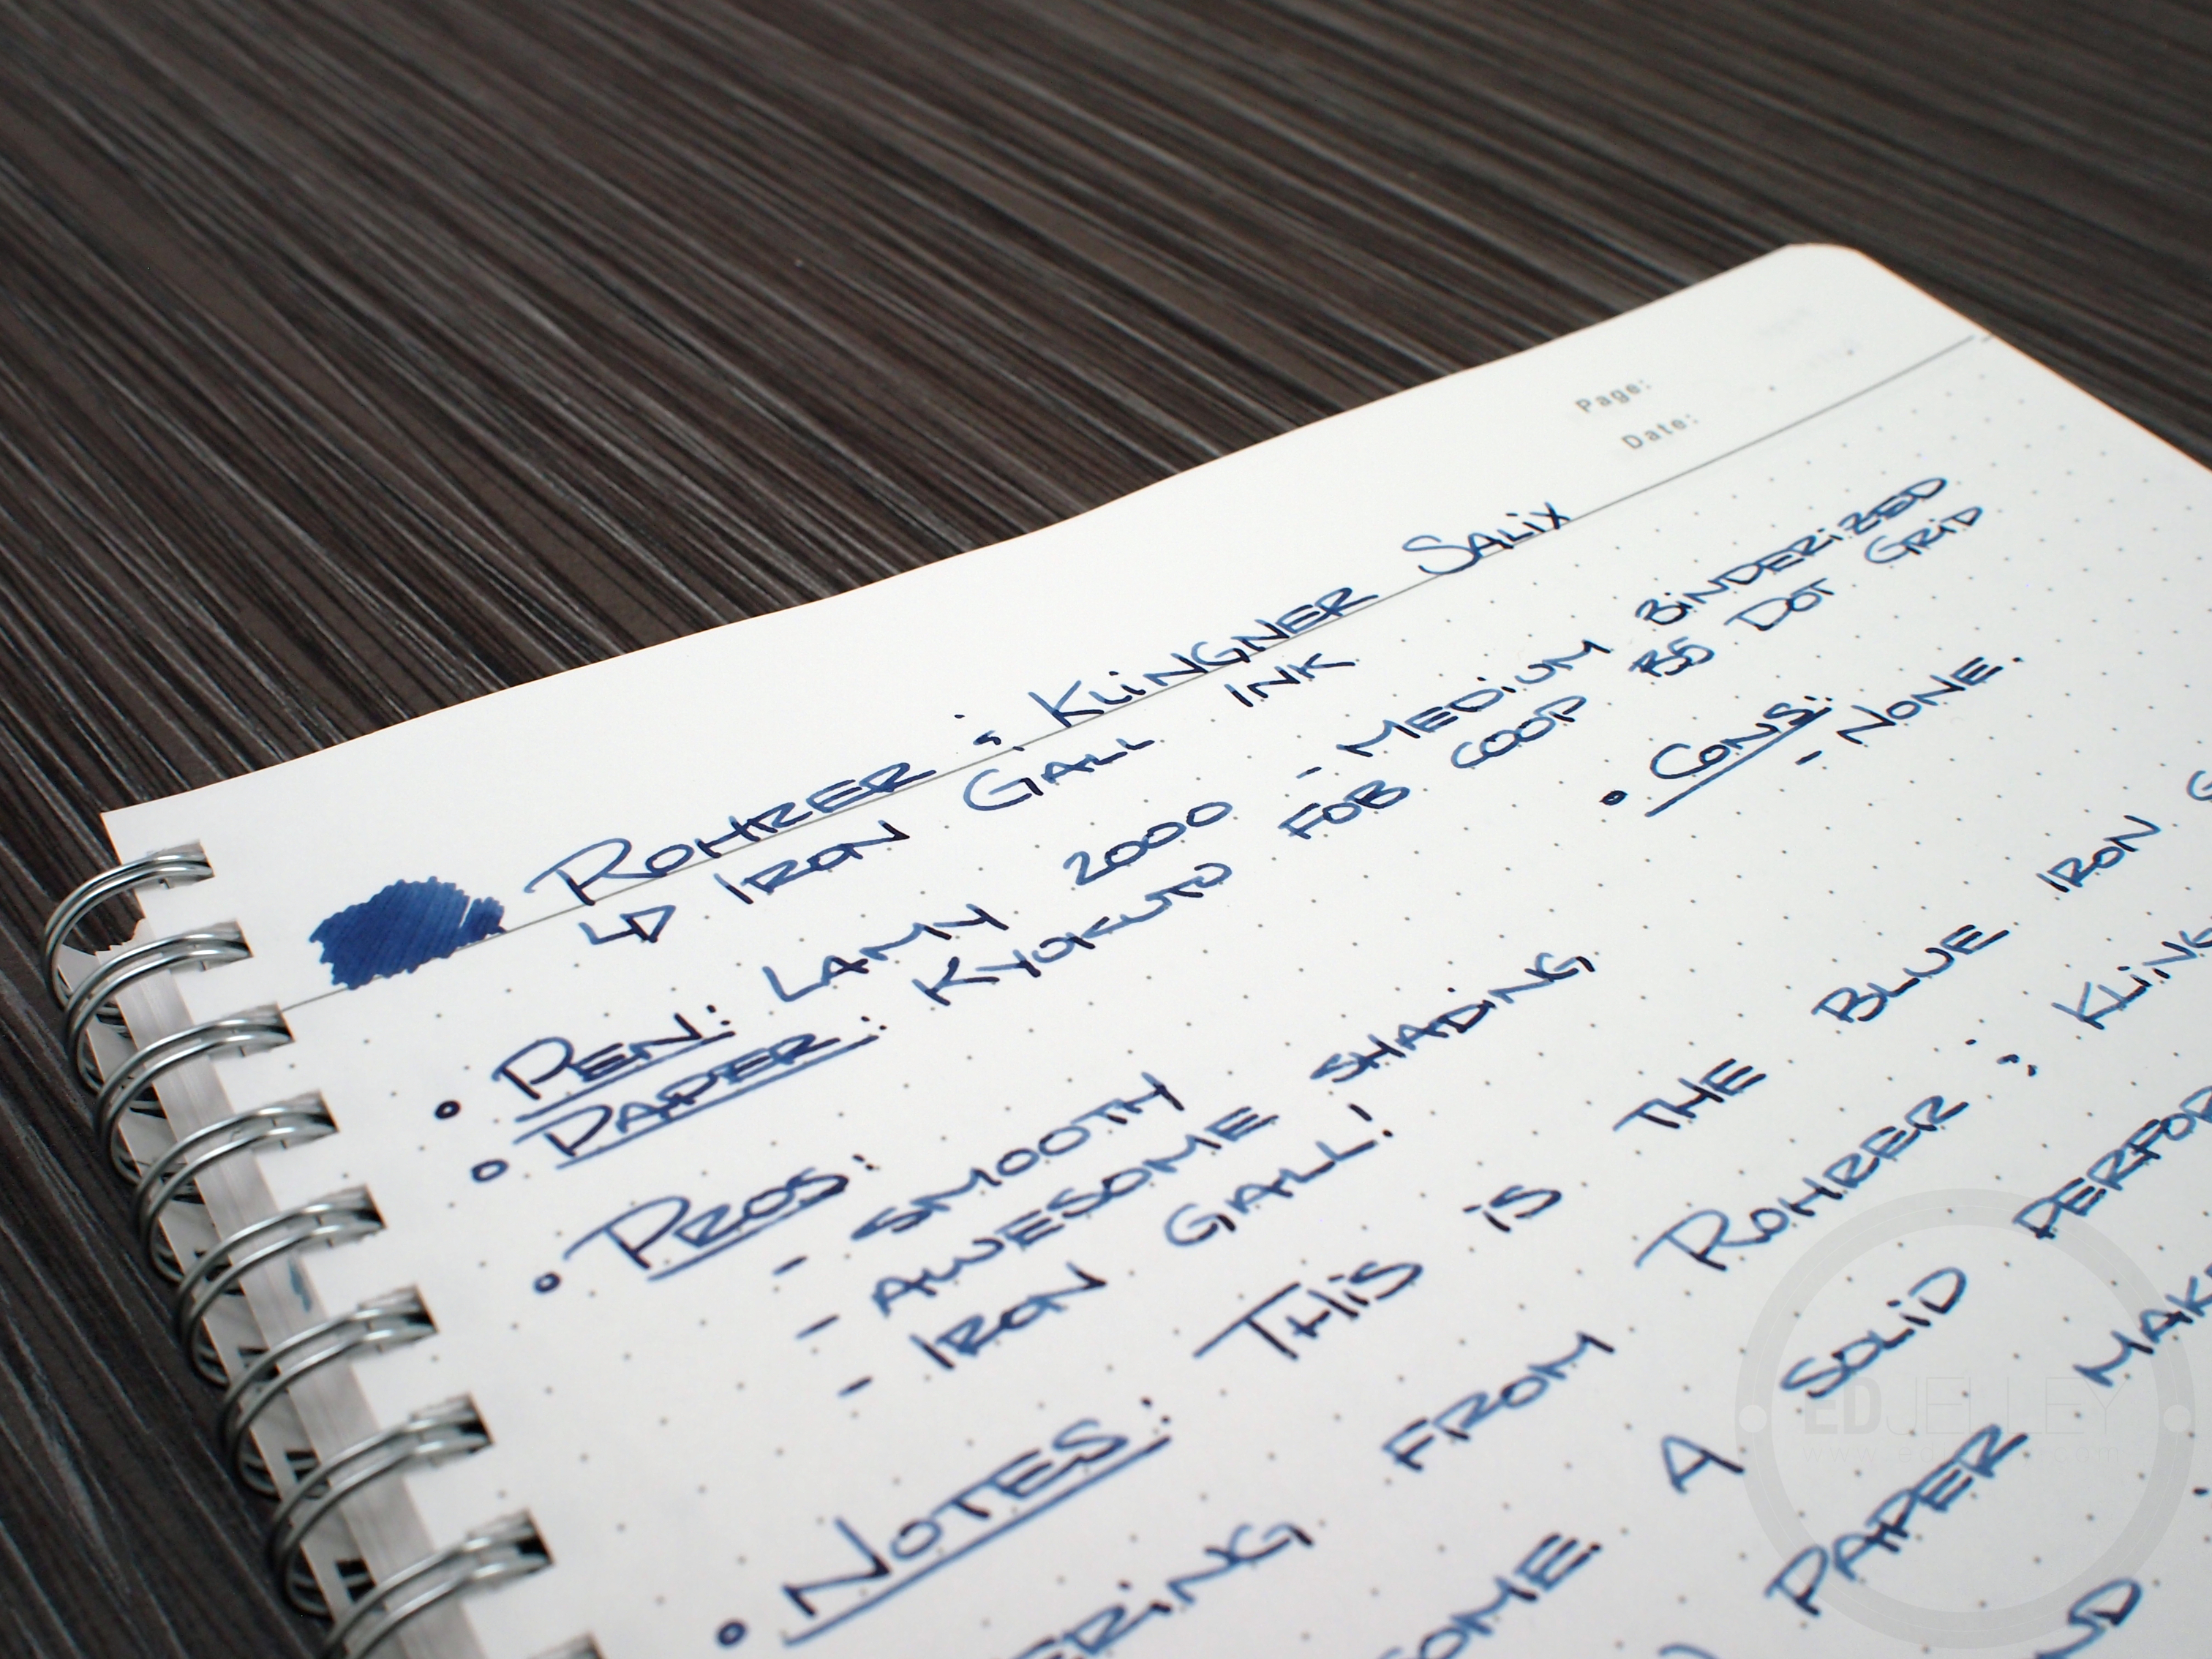 Page:
Date:
ROHRER & KLINGNER SALIX
↳ IRON GALL INK
• PEN: LAMY 2000 - MEDIUM BINDERIZED
• PAPER: KYOKUTO FOB COOP B5 DOT GRID
• PROS:
- SMOOTH
- AWESOME SHADING
- IRON GALL!
• CONS:
- NONE.
• NOTES: THIS IS THE BLUE IRON
FROM ROHRER &
A SOLID
PAPER
ED JELLEY